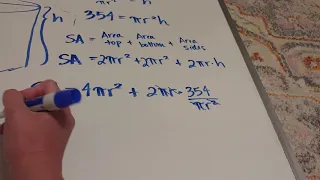 πr²
h 354 = πr²h
SA = Area top + Area bottom + Area sides
SA = 2πr² + 2πr² + 2πr·h
4πr² + 2πr · 354/πr²